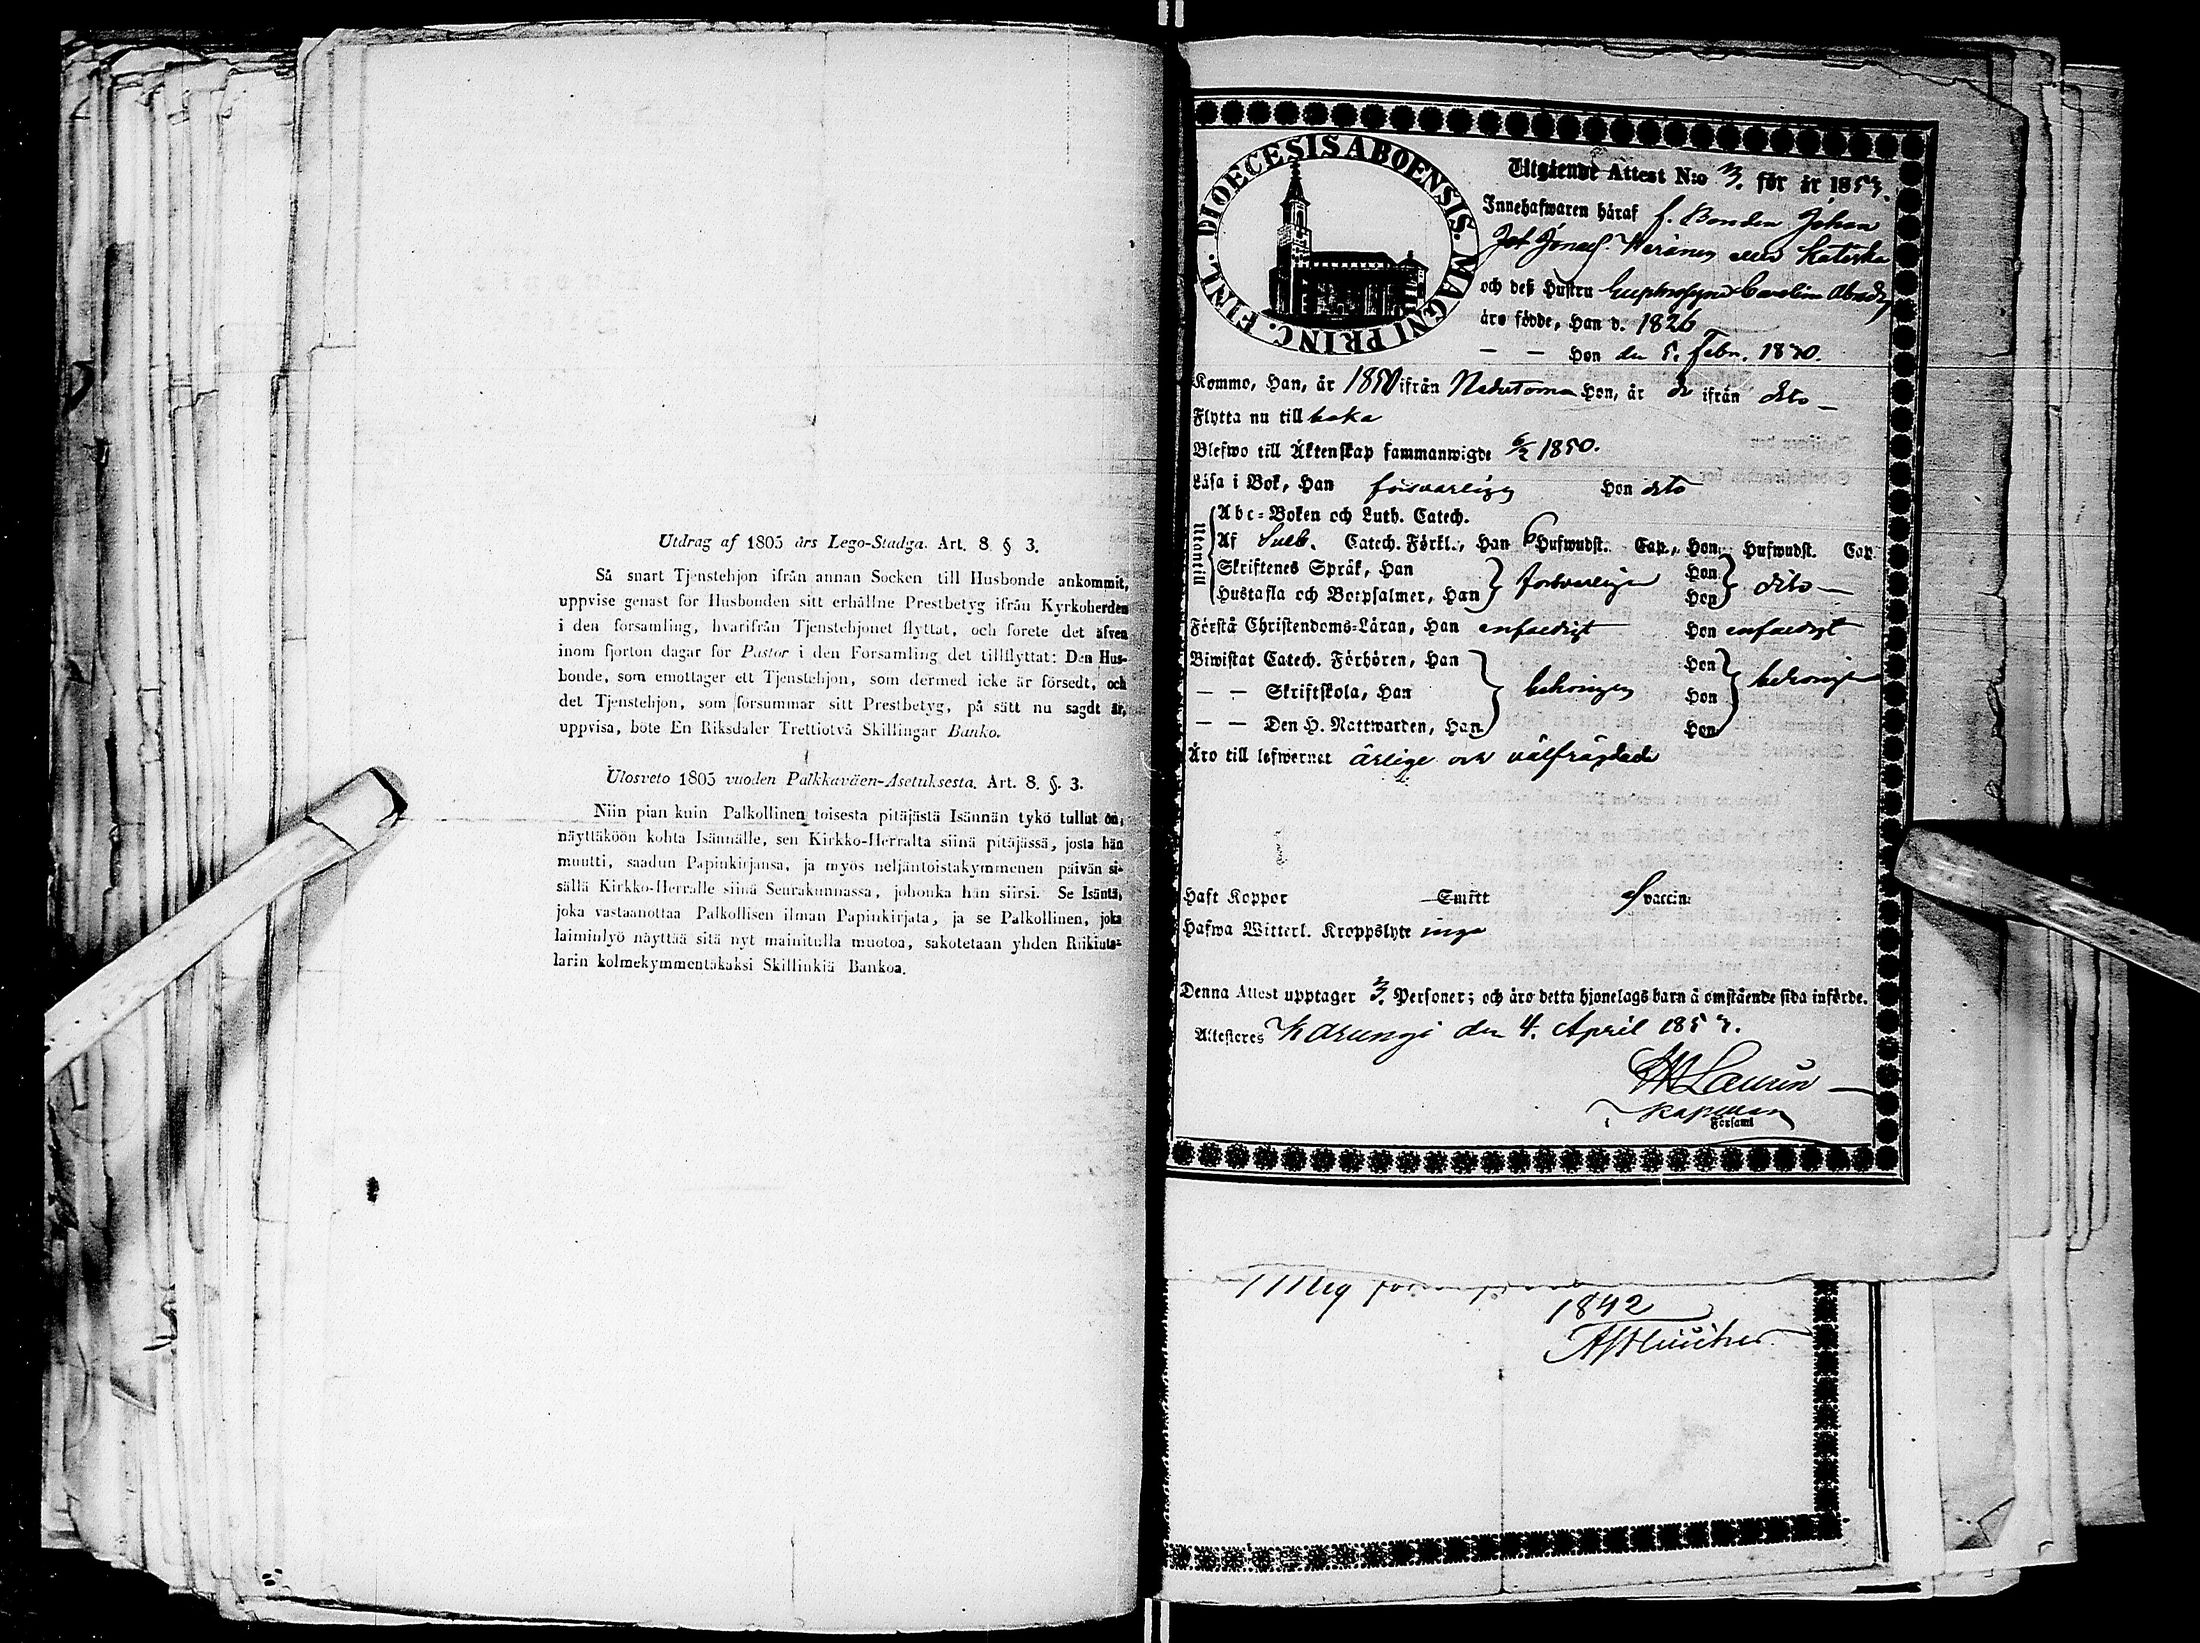 Utdrag af 1805 års Lego-Stadga. Art. 8 § 3.
Så snart Tjenstehjon ifrån annan Socken till Husbonde ankommit,
uppvise genast för Husbonden sitt erhållne Prestbetyg ifrån Kyrkoherden
i den forsamling, hvarifrån Tjenstehjonet flyttat, och forete det äfven
inom fjorton dagar för Pastor i den Forsamling det tillflyttat: Den Hus-
bonde, som emottager ett Tjenstehjon, som dermed icke är försedt, och
det Tjenstehjon, som forsummar sitt Prestbetyg, på sätt nu sagdt är,
uppvisa, böte En Riksdaler Trettiotvå Skillingar Banko.
Ulosveto 1805 vuoden Palkkaväen-Asetuksesta. Art. 8. §. 3.
Niin pian kuin Palkollinen toisesta pitäjästä Isännän tykö tullut on,
näyttäköön kohta Isännälle, sen Kirkko-Herralta siinä pitäjässä, josta hän
muutti, saadun Papinkirjansa, ja myös neljäntoistakymmenen päivän si-
sällä Kirkko-Herralle siinä Seurakunnassa, johonka hän siirsi. Se Isäntä,
joka vastaanottaa Palkollisen ilman Papinkirjata, ja se Palkollinen, joka
laiminlyö näyttää sitä nyt mainitulla muotoa, sakotetaan yhden Riikinta-
larin kolmekymmentäkaksi Skillinkiä Bankoa.
DIOECESIS ABOENSIS. MAGNI PRINC. FINL.
Utgående Attest N:o 3. för år 1853.
Innehafwaren häraf f. Bonden Johan
och deß Hustru Carolina
äro födde, Han d. 1826
— — Hon den 5. Febr. 1830.
Komma, Han, år 1850 ifrån Hon, år do ifrån dito —
Flytta nu till baka
Blefwo till Äktenskap sammanwigde 6/2 1850.
Läsa i Bok, Han försvarligen Hon dito
Utantill
Abc-Boken och Luth. Catech.
Af Sveb. Catech. Förkl., Han 6 Hufwudst. Cap., Hon Hufwudst. Cap
Skriftenes Språk, Han Hon
försvarligen dito —
Hustafla och Botpsalmer, Han Hon
Förstå Christendoms-Läran, Han enfaldigt Hon enfaldigt
Biwistat Catech. Förhören, Han Hon
— — Skriftskola, Han behörigen Hon behörigen
— — Den H. Nattwarden, Han Hon
Äro till lefwernet ärlige och välfrägdade
Haft Koppor Smitt vaccin:
Hafwa Witterl. Kroppslyte inga
Denna Attest upptager 3. Personer; och äro detta hjonelags barn å omstående sida införde.
Attesteres Karungi den 4. April 1853.
Laurin —
i kapman
Församl
1842